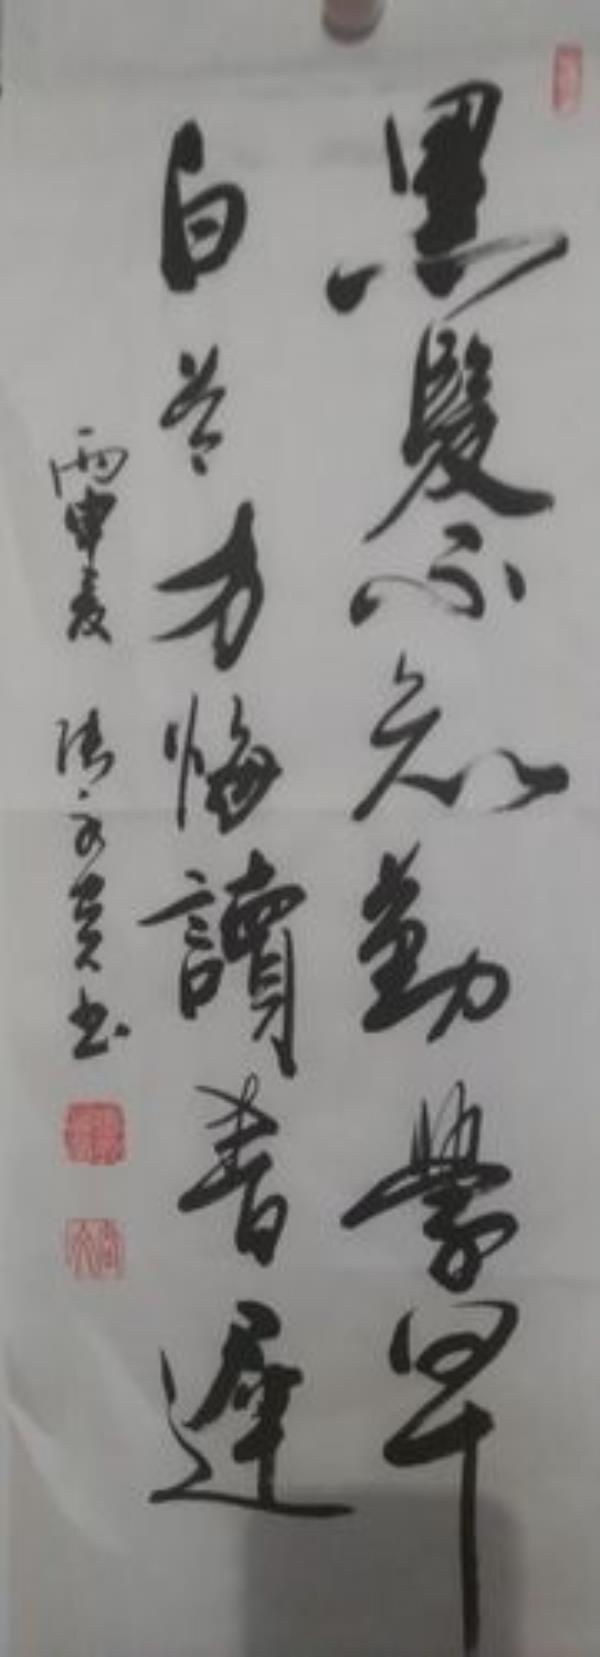 黑髮不知勤學早
白首方悔讀書遲
丙申夏 书